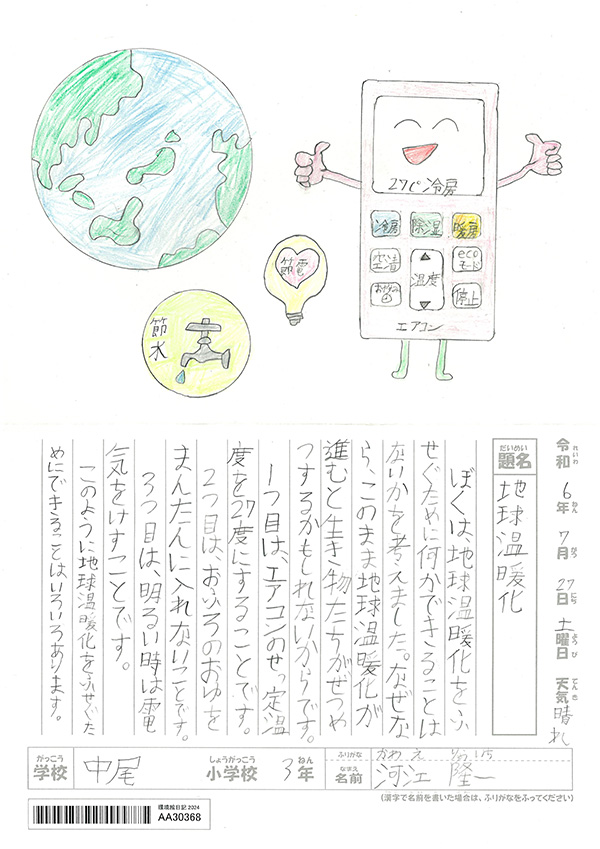 27℃ 冷房
冷房
除湿
暖房
空清
温度
ecoモード
停止
エアコン
節電
節水
令和 6年 7月 27日 土曜日 天気 晴れ
れいわ ねん がつ にち ようび てんき
だいめい
題名
地球温暖化
ぼくは、地球温暖化をふ
せぐために何かできることは
ないかを考えました。なぜな
ら、このまま地球温暖化が
進むと生き物たちがぜつめ
つするかもしれないからです。
1つ目は、エアコンのせっ定温
度を27度にすることです。
2つ目は、おふろのおゆを
まんたんに入れないことです。
3つ目は、明るい時は電
気をけすことです。
このように地球温暖化をふせぐた
めにできることはいろいろあります。
がっこう しょうがっこう ねん
学校 中尾 小学校 3年
ふりがな かわえ
なまえ
名前 河江 隆一
(漢字で名前を書いた場合は、ふりがなをふってください)
環境絵日記 2024
AA30368